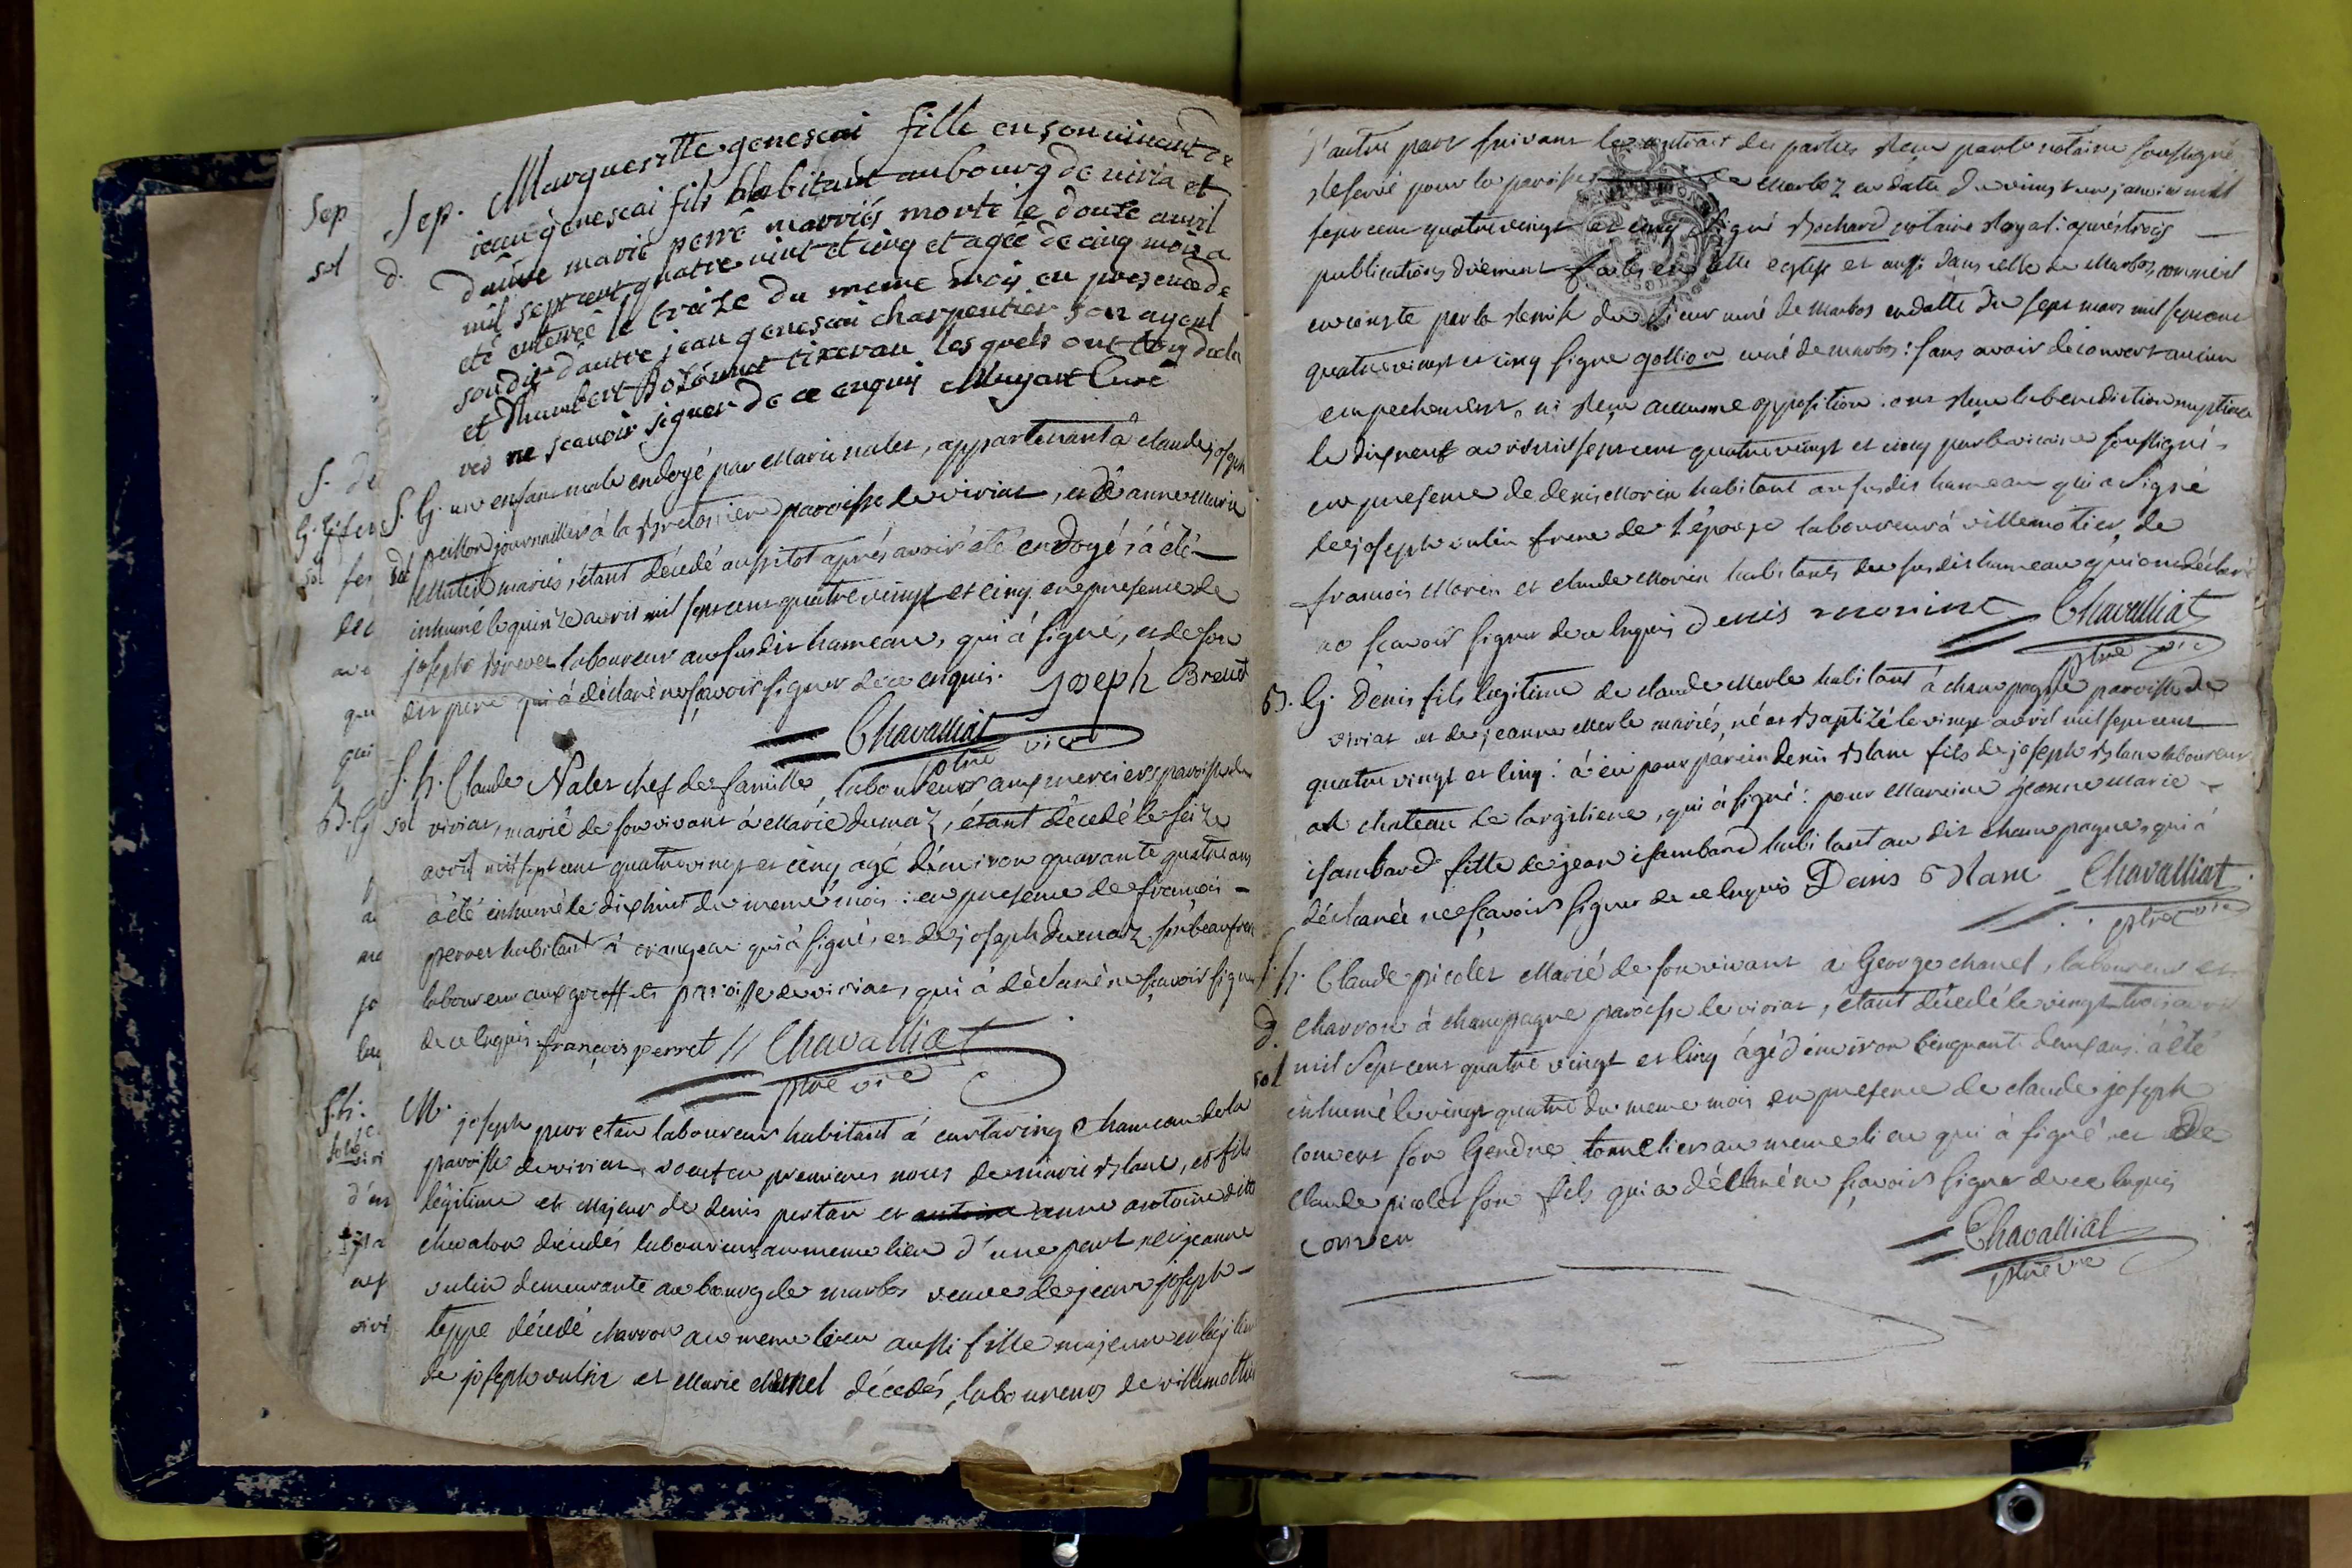 Sep. Margueritte genescai fille en son vivant de
d. jean genescai fils habitant au bourg de viria et
d'autre marie perré marriés morte le douze avril
mil sept cent quatre vint et cinq et agée de cinq mois a
été enterrée le traize du meme mois en presence de
son dit d'autre jean genescai charpentier son ayeul
et d'humbert tixeran les quels ont decla
ne scavoir signer de ce enquis Muyart Curé
S. G. un enfant male endoyé par Marie nalet, appartenant à claude joseph
peillon journaillier à la paroisse de viriat, et d'anne Marie
mariés, étant décédé aussitot après avoir été endoyé, à été
sol
inhumé le quinze avril mil sept cent quatre vingt et cinq en presence de
joseph brevet laboureur au susdit hameau, qui à signé, et de son
dit pere qui à déclaré ne sçavoir signer de ce enquis. joseph Brevet
Chavalliat
ptre vic
S. h. Claude Nalet chef de famille, laboureur aux merciers paroisse de
sol viriat, marié de son vivant à Marie dumaz, étant décédé le seize
avril mil sept cent quatre vingt et cinq agé d'environ quarante quatre ans
à été inhumé le dixhuit du meme mois : en presence de francois
perret habitant à crangeat qui à signé, et de joseph dumaz son beau frere
laboureur aux greffets paroisse de viriat, qui à déclaré ne sçavoir signer
de ce enquis françois perret // Chavalliat
ptre vic
M. joseph laboureur habitant à curtaringe hameau de la
paroisse de viriat, veuf en premieres noces de marie blanc, et fils
légitime et Majeur de denis pertan et antoine anne antoine ditte
chevalon décédés laboureurs au meme lieu d'une part et jeanne
vulin demeurante au bourg de marbos veuve de jean joseph
teppe décédé charron au meme lieu aussi fille majeure et légitime
de joseph vulin et Marie décédés, laboureurs de villemottier
d'autre part suivant le contrat des parties reçu par le notaire soussigné
reservé pour la paroisse de Marboz en datte du vingt un janvier mil
sept cent quatre vingt et cinq signé Bochard notaire Royal : après trois
publications duement faites en cette eglise et aussi dans celle de Marbos, comme il
en conste par la remise du sieur curé de Marbos en datte du sept mars mil sept cent
quatre vingt et cinq signé gollion curé de marbos : sans avoir découvert aucun
empechement, ni reçu aucunne opposition. ont reçu la benediction nuptiale
le dixneuf avril mil sept cent quatre vingt et cinq par le vicaire soussigné
en presence de denis Morin habitant au susdit hameau qui a signé
de joseph vulin frere de l'épouse laboureur à villemotier, de
francois Morin et claude Morin habitants du susdit hameau qui ont déclaré
ne sçavoir signer de ce enquis denis morin Chavalliat
ptre vic
B. G. Denis fils légitime de claude Merle habitant à champagne paroisse de
viriat et de jeanne Merle mariés, né et baptizé le vingt avril mil sept cent
quatre vingt et cinq : à eu pour parein denis blanc fils de joseph blanc laboureur
au chateau de largiliere, qui à signé : pour Mareine jeanne Marie
isambard fille de jean isambard habitant au dit champagne, qui à
déclarée ne sçavoir signer de ce enquis Denis blanc Chavalliat
ptre vic
S. h. Claude picolet Marié de son vivant à George chanel, laboureur et
d. charron à champagne paroisse de viriat, étant décédé le vingt trois avril
sol mil Sept cent quatre vingt et cinq âgé d'environ cinquante deux ans à été
inhumé le vingt quatre du meme mois en presence de claude joseph
convert son Gendre tonnelier au meme lieu qui à signé et de
claude picolet son fils qui a déclaré ne sçavoir signer de ce enquis
conver
Chavalliat
ptre vic